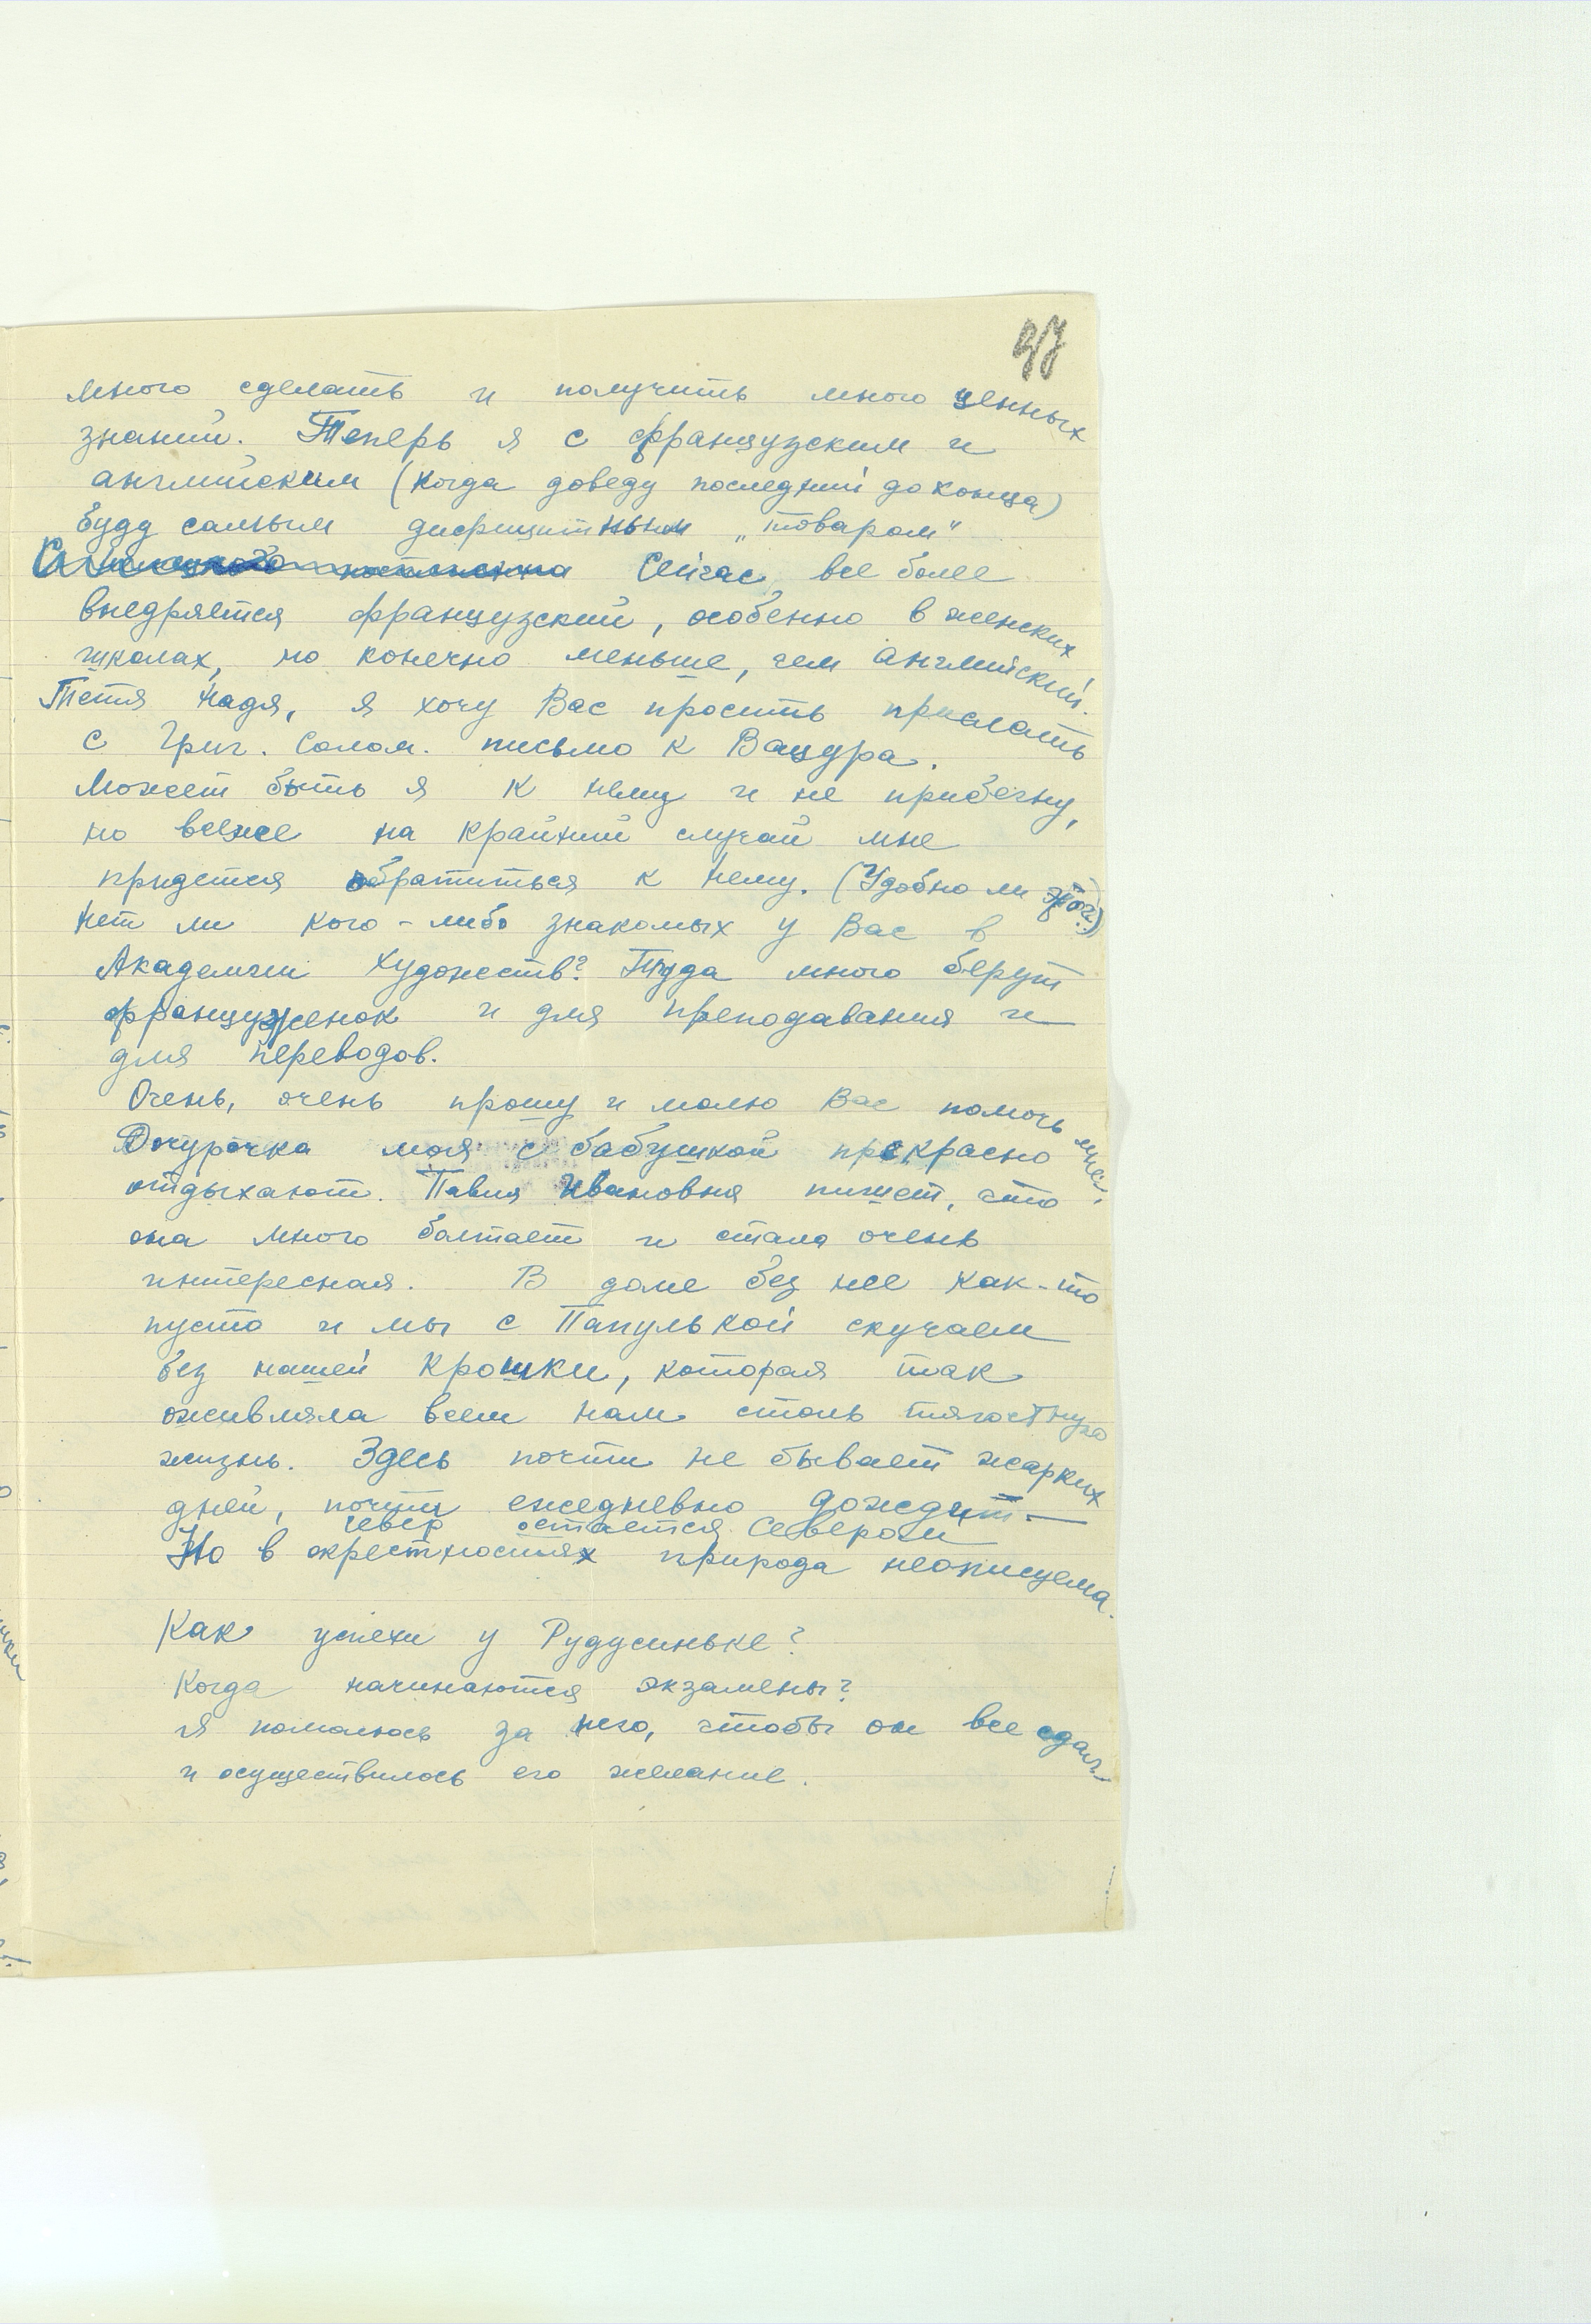 47
много сделать и получить много ценных
знаний. Теперь я с французским и
английским (когда доведу последний до конца)
буду самым дефицитным „товаром"
Сейчас все более
внедряется французский, особенно в женских
школах, но конечно меньше, чем английский.
Тетя Надя, я хочу Вас просить прислать
с Григ. Солом. письмо к Вацура.
Может быть я к нему и не прибегну,
но всеже на крайний случай мне
придется обратиться к нему. (Удобно ли это?)
Нет ли кого-либо знакомых у Вас в
Академии Художеств? Туда много берут
француженок и для преподавания и
для переводов.
Очень, очень прошу и молю Вас помочь мне!
Дочурочка моя с бабушкой прекрасно
отдыхают. Павла Ивановна пишет, что
она много болтает и стала очень
интересная. В доме без нее как-то
пусто и мы с Папулькой скучаем
без нашей крошки, которая так
оживляла всем нам столь тягостную
жизнь. Здесь почти не бывает жарких
дней, почти ежедневно дождит —
север остается севером
Но в окрестностях природа неописуема.
Как успехи у Рудусиньке?
Когда начинаются экзамены?
Я помолюсь за него, чтобы он все сдал
и осуществилось его желание.